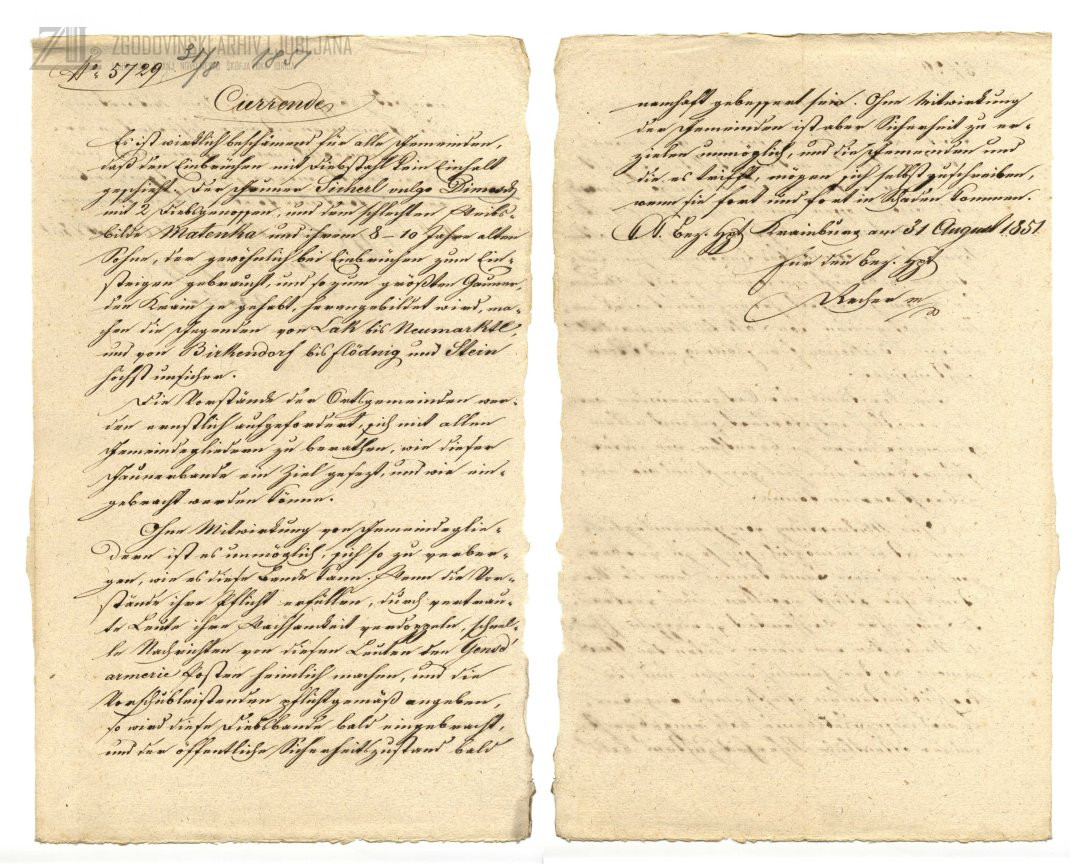 ZGODOVINSKI ARHIV LJUBLJANA
No 5729 31/8 1851
Currende
Es ist wirklich beschämend für alle Gemeinden,
daß den Einbrüchen mit Diebstahl kein Einhalt
geschieht. Der Gauner Sicherl vulgo Dimesch
mit 2 Diebsgenossen, und dem schlechten Weibs-
bilde Matenka und ihrem 8-10 Jahre alten
Sohne, der gewöhnlich bei Einbrüchen zum Ein-
steigen gebraucht, und so zum größten Gauner,
den Krain je gehabt, herangebildet wird, ma-
chen die Gegenden von Lak bis Neumarktl,
und von Birkendorf bis Flödnig und Stein
höchst unsicher.
Die Vorstände der Ortsgemeinden wer-
den ernstlich aufgefordert, sich mit allen
Gemeindegliedern zu berathen, wie dieser
Gaunerbande ein Ziel gesezt, und wie ein-
gebracht werden könne.
Ohne Mitwirkung von Gemeindeglie-
dern ist es unmöglich, sich so zu verber-
gen, wie es diese Bande kann. Wenn die Vor-
stände ihre Pflicht erfüllen, durch vertrau-
te Leute ihre Wachsamkeit verdoppeln, schnel-
le Nachrichten von diesen Leuten den Gensd'
armerie Posten heimlich machen, und die
Vorschubleistenden pflichtgemäß angeben,
so wird diese Diebsbande bald eingebracht,
und der öffentliche Sicherheitszustand bald
namhaft gebessert sein. Ohne Mitwirkung
der Gemeinden ist aber Sicherheit zu er-
zielen unmöglich, und die Gemeinden und
die es trifft, mögen sich selbst zuschreiben,
wenn sie fort und fort in Schaden kommen.
K. K. Bez. Hpt. Krainburg am 31 August 1851
Für den Bez. Hpt